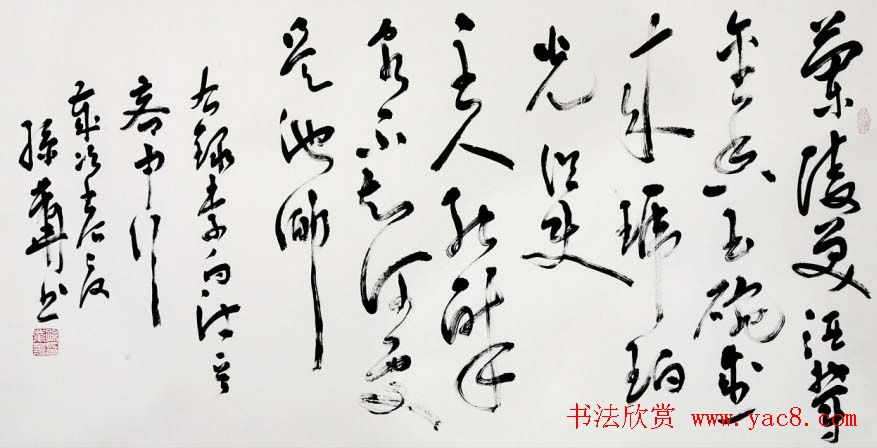 蘭陵美酒鬱
金香玉碗盛
来琥珀
光但使
主人能醉
客不知何處
是他鄉
右録李白诗
客中行
歲次
孫 书
书法欣赏 www.yac8.com